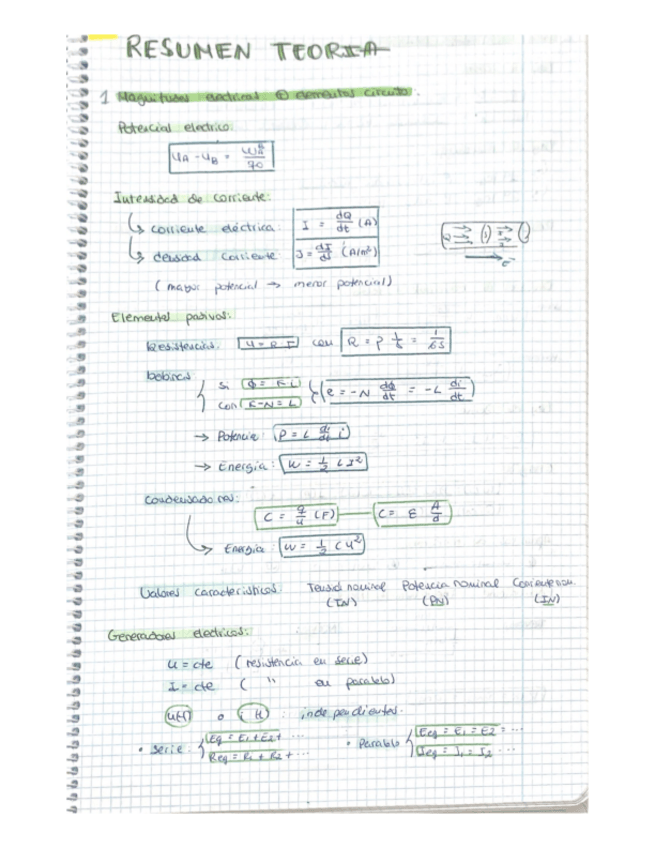 RESUMEN TEORIA
1 Magnitudes electricas elementos circuito.
Potencial electrico:
UA - UB =
Intensidad de corriente:
corriente eléctrica: I = dQ/dt (A)
densidad corriente: J = dI/dS (A/m²)
(mayor potencial → menor potencial)
Elementos pasivos:
Resistencias: U = R I con R = ρ l/s =
bobinas:
Si Φ = K i
con K·N = L
e = -N dΦ/dt = -L di/dt
→ Potencia: P = L di/dt i
→ Energía: W = 1/2 L I²
Condensadores:
C = q/u (F) C = ε A/d
Energia: W = 1/2 C u²
Valores caracteristicos: Tensid nominal Potencia nominal Corriente nom.
(PN) (IN)
Generadores electricos:
U = cte (resistencia en serie)
I = cte ( " en paralelo)
u(t) o i(t) : independientes.
• serie: Eq = E1 + E2 + ...
Req = R1 + R2 + ...
• Paralelo Eeq = E1 = E2 = ...